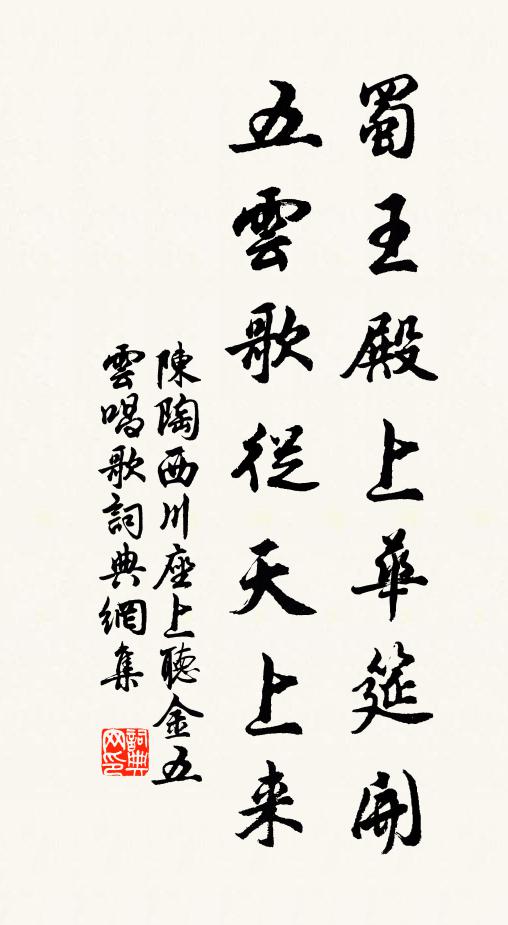 蜀王殿上華筵開
五雲歌從天上来
陳陶西川座上聽金五
雲唱歌詞典網集
詞典网印